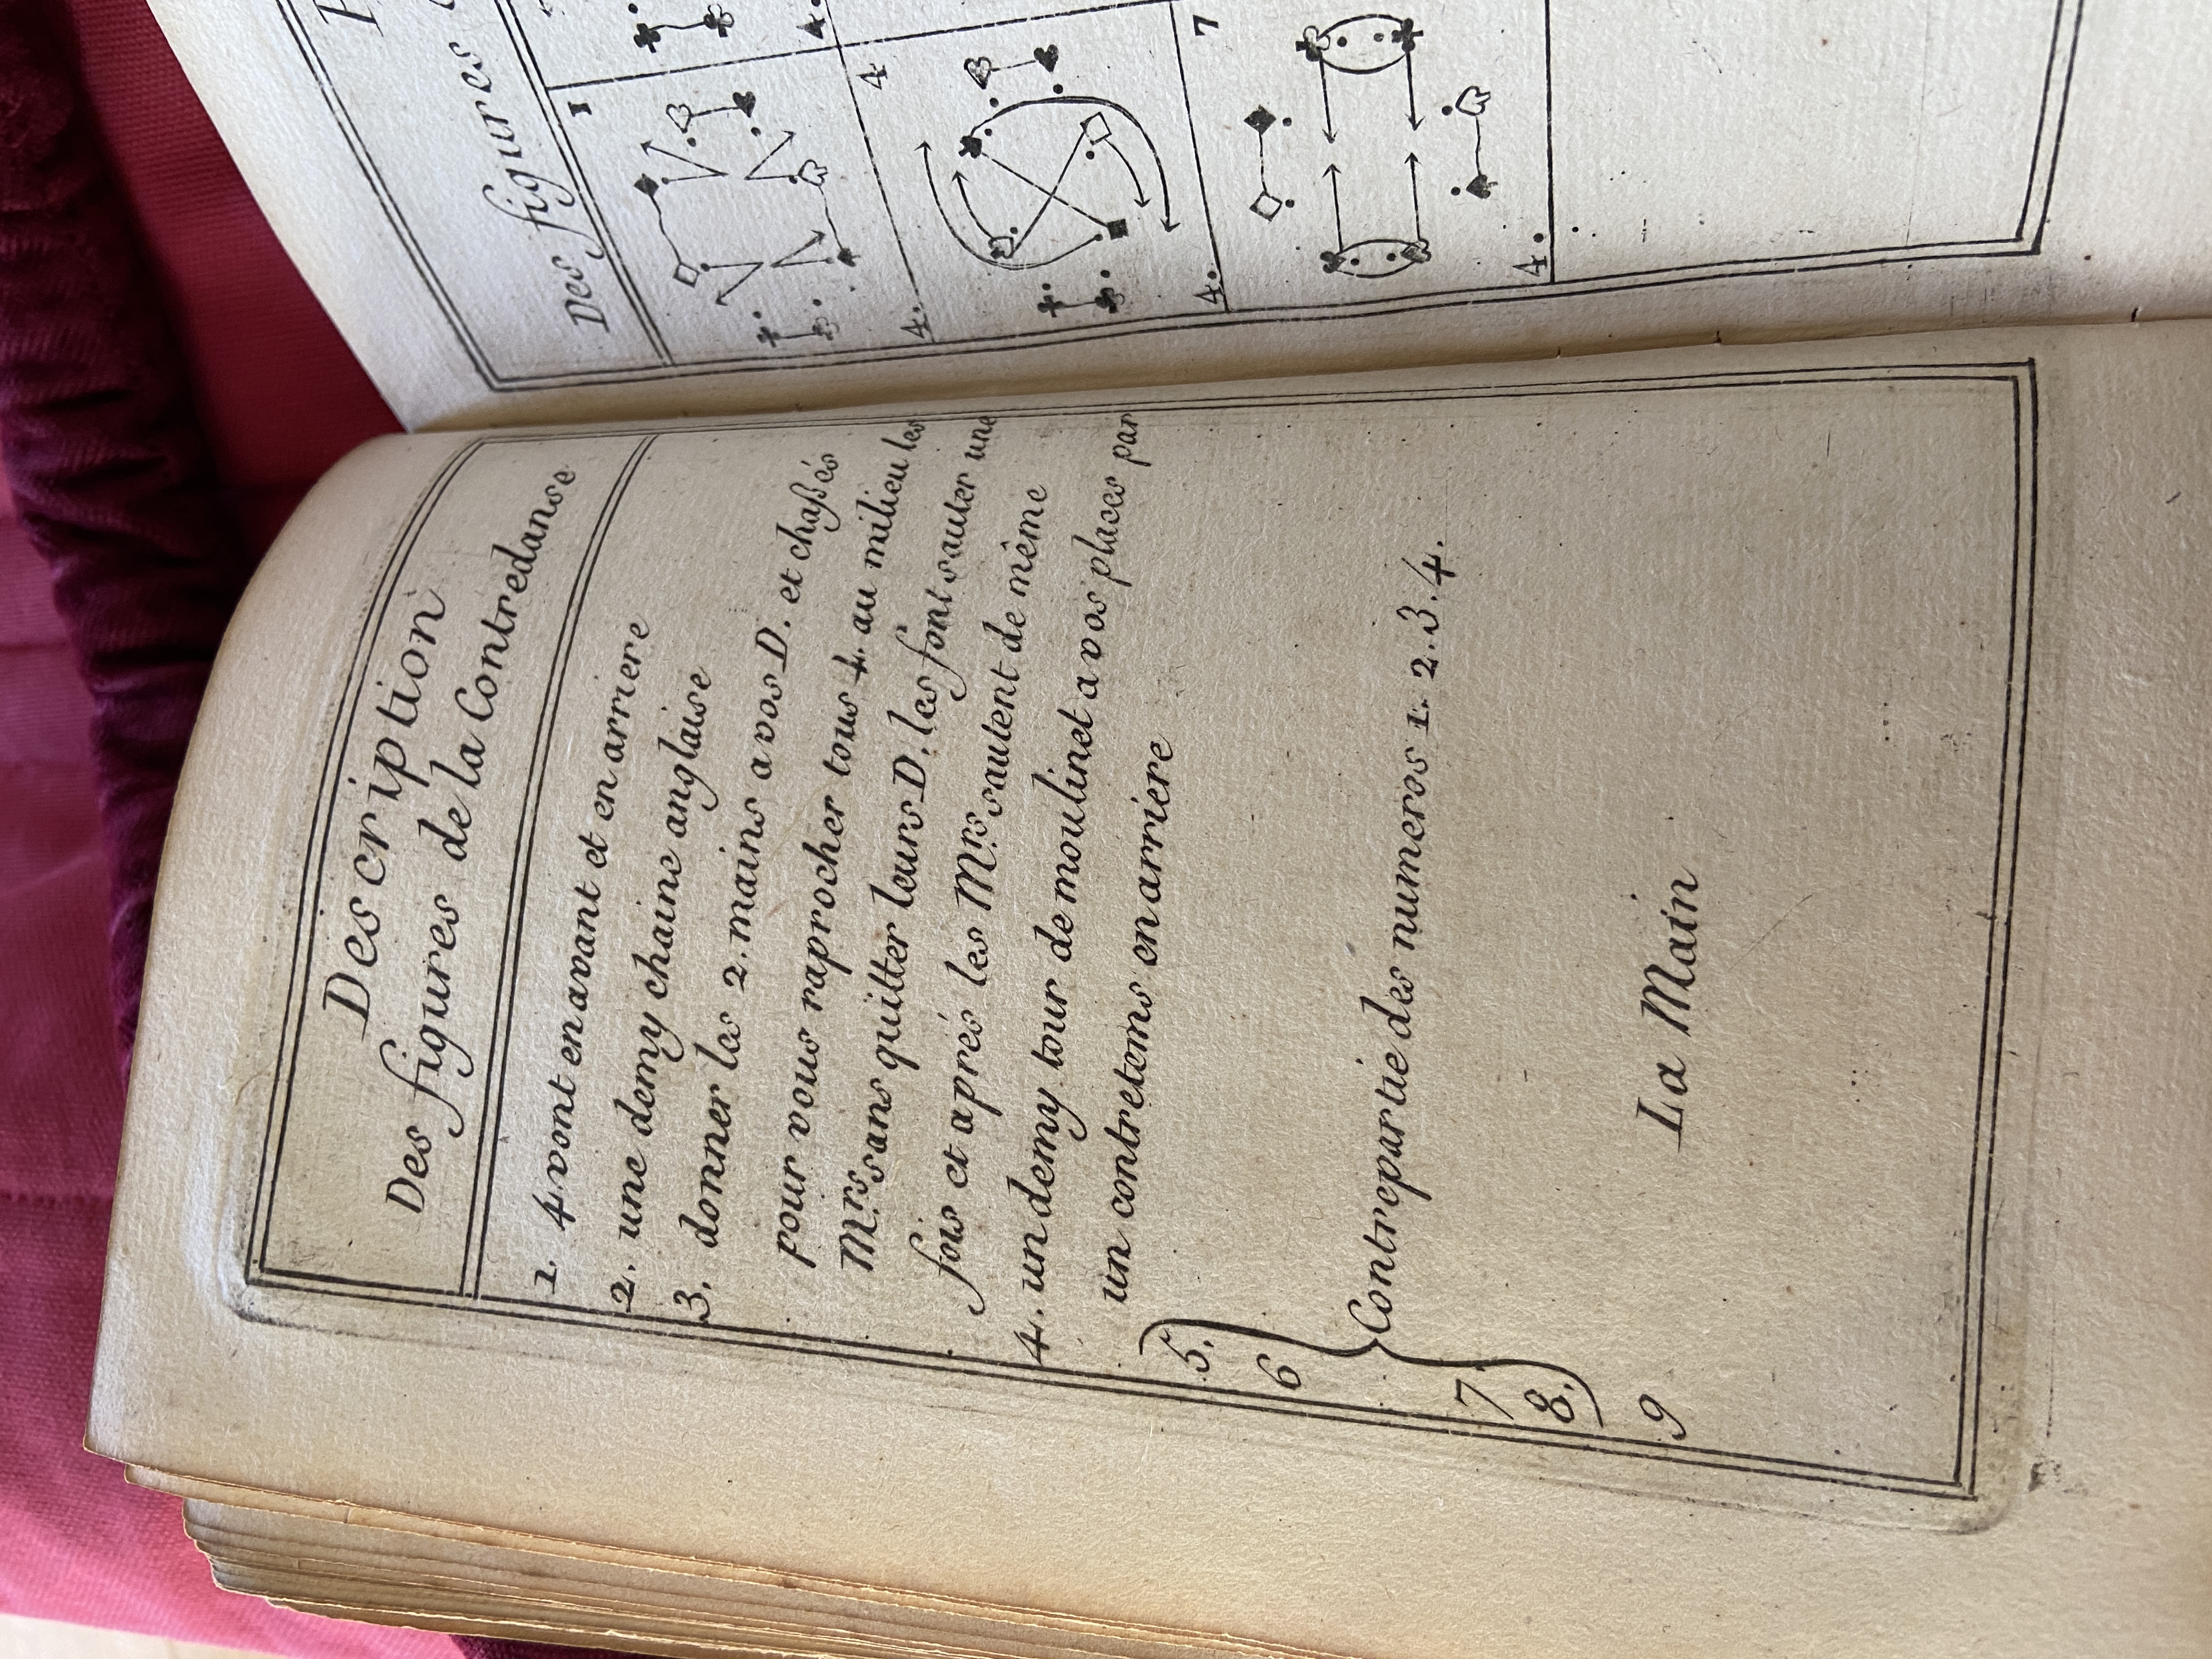 Description
Des figures de la Contredanse
1. 4. vont en avant et en arriere
2. une demy chaine anglaise
3. donner les 2. mains a vos D. et chaßés
pour vous raprocher tous 4. au milieu les
Mrs. sans quitter leurs D. les font sauter une
fois et aprés les Mrs. sautent de même
4. un demy tour de moulinet a vos places par
un contretems en arriere
5.
6
Contrepartie des numeros 1. 2. 3. 4.
7
8.
9 La Main
Des figures
1
4.
4
4.
7
4.
4.